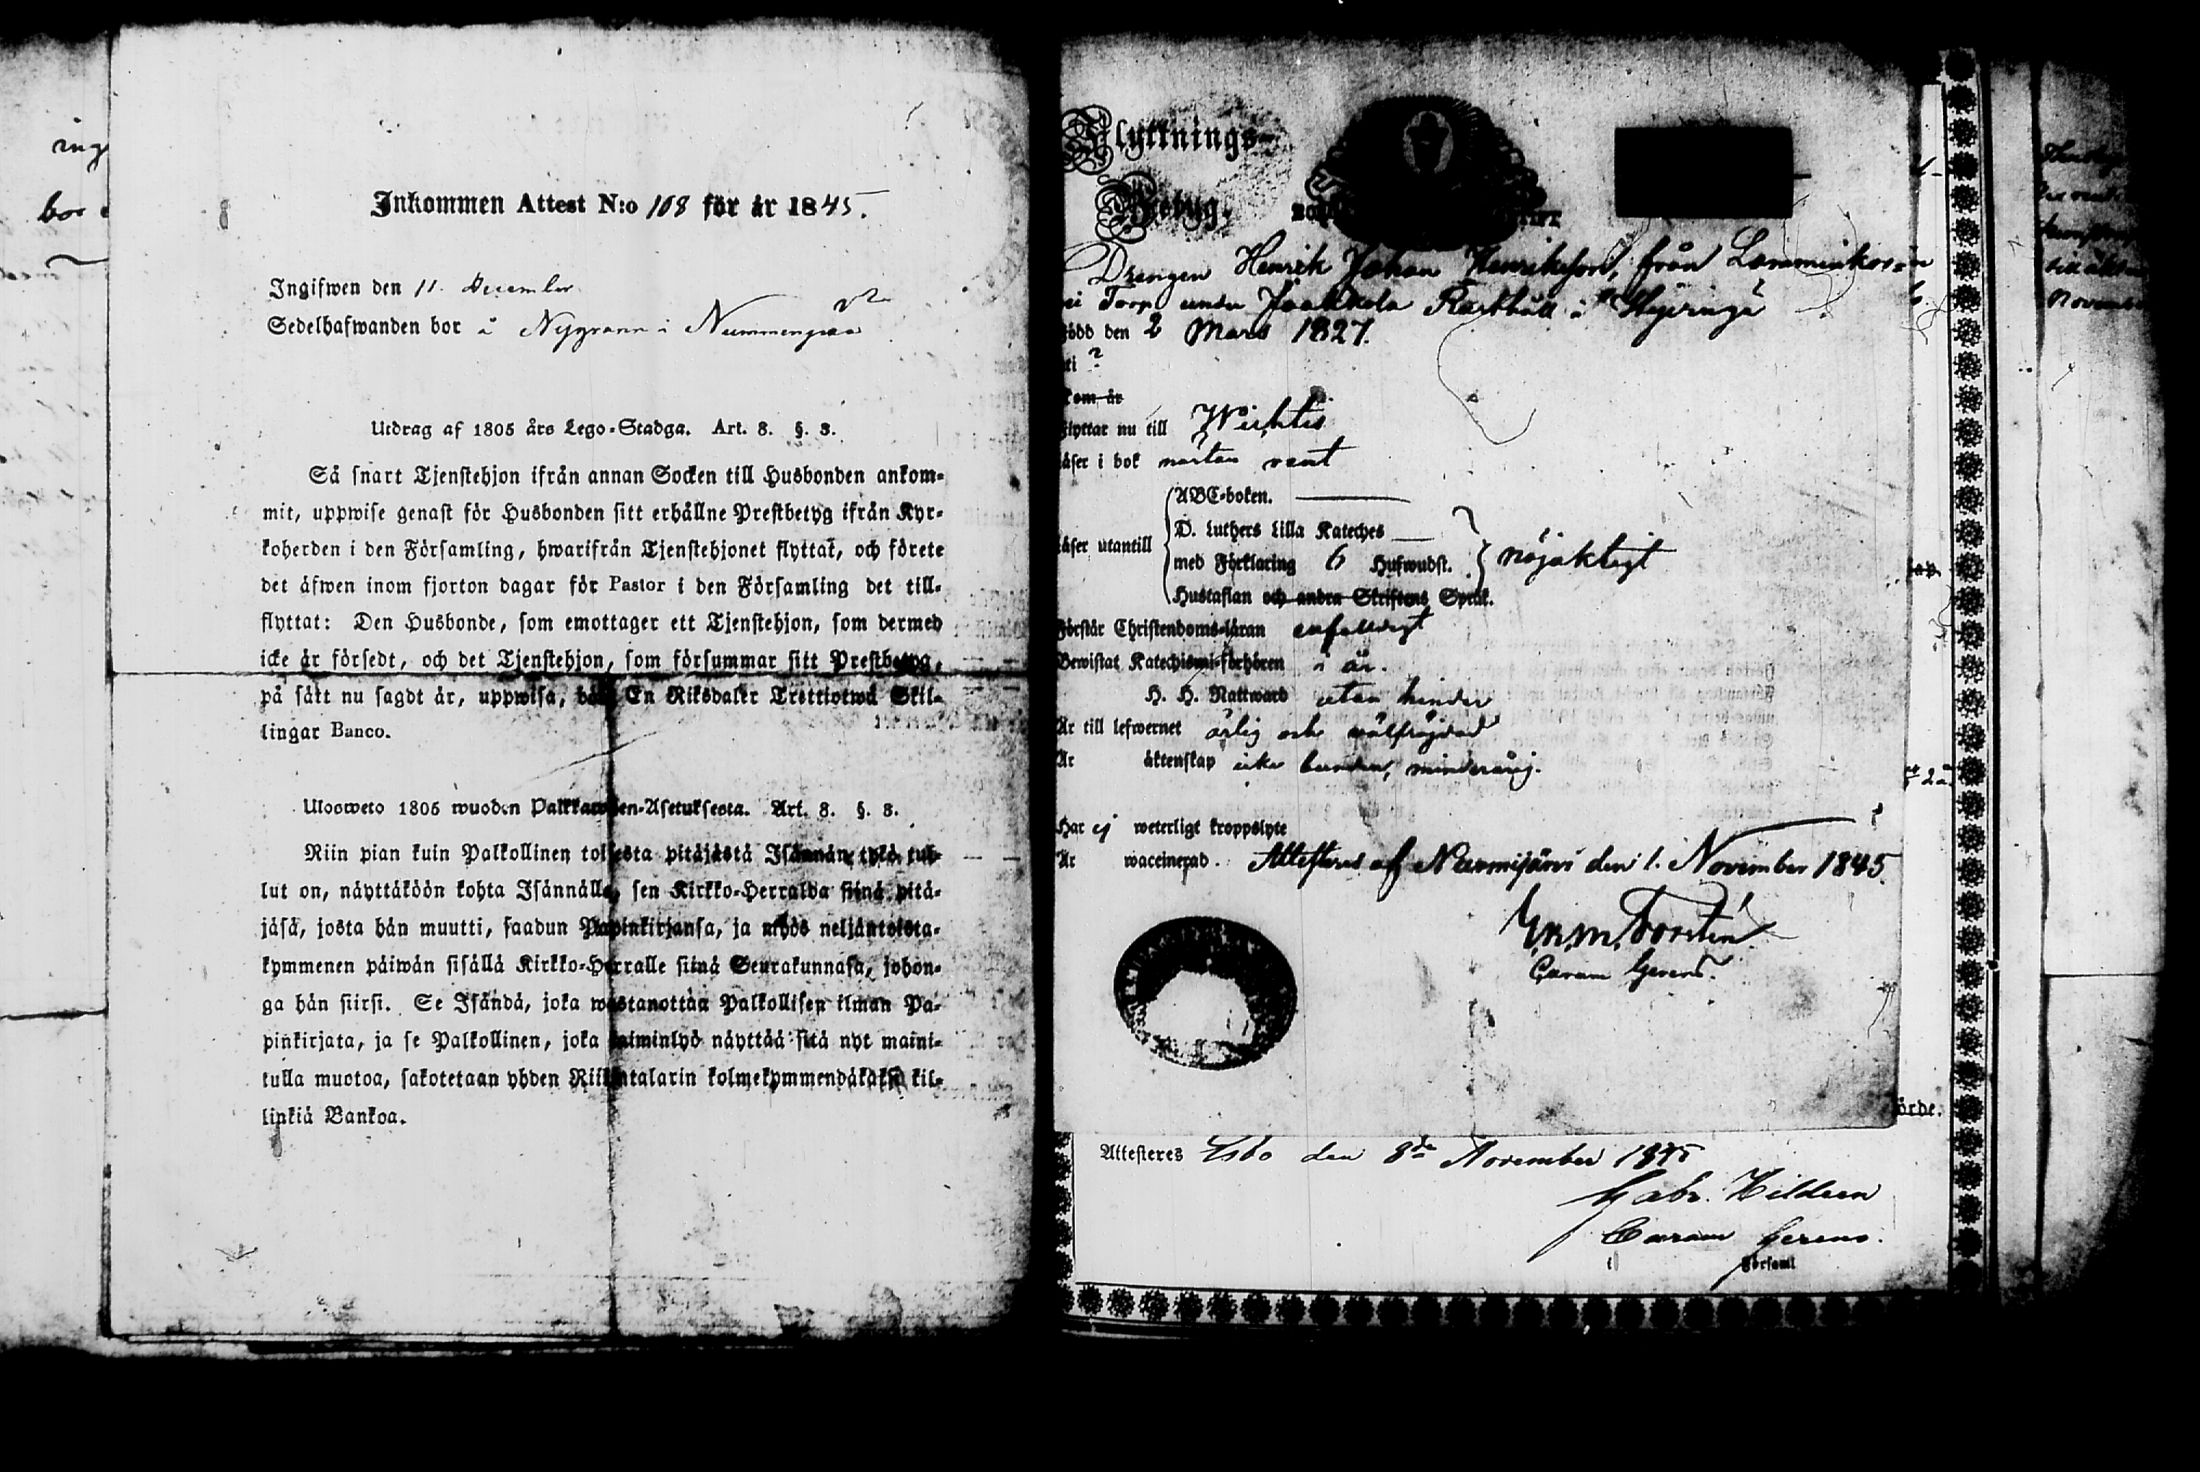 Inkommen Attest N:o 108 för år 1845.
Ingifwen den 11. December
Sedelhafwanden bor å Nygrann i Nummenpää
Utdrag af 1805 års Lego-Stadga. Art. 8. §. 3.
Så snart Tjenstehjon ifrån annan Socken till Husbonden ankom-
mit, uppwise genast för Husbonden sitt erhållne Prestbetyg ifrån Kyr-
koherden i den Församling, hwarifrån Tjenstehjonet flyttat, och förete
det äfwen inom fjorton dagar för Pastor i den Församling det till-
flyttat: Den Husbonde, som emottager ett Tjenstehjon, som dermed
icke är försedt, och det Tjenstehjon, som försummar sitt Prestbetyg,
på sätt nu sagdt är, uppwisa, En Riksdaler Trettiotwå Skil-
lingar Banco.
Ulosweto 1805 wuoden Palkkawäen-Asetuksesta. Art. 8. §. 3.
Niin pian kuin Palkollinen toisesta pitäjästä Isännän tykö tul-
lut on, näyttäköön kohta Isännälle, sen Kirkko-Herralda siinä pitä-
jäsä, josta hän muutti, saadun Papinkirjansa, ja myös neljäntoista-
kymmenen päiwän sisällä Kirkko-Herralle siinä Seurakunnasa, johon-
ga hän siirsi. Se Isändä, joka wastanottaa Palkollisen ilman Pa-
pinkirjata, ja se Palkollinen, joka laiminlyö näyttää sitä nyt maini-
tulla muotoa, sakotetaan yhden Riksintalarin kolmekymmendäkaksi kil-
linkiä Bankoa.
Flyttnings-
Betyg.
Drengen Henrik Johan Henriksson, från
Torp under Jaakkola Rusthåll i
född den 2 Mars 1827.
ti ?
kom år
flyttar nu till Wichtis
läser i bok nästan rent
ABC-boken.
D. Luthers Lilla Kateches
läser utantill med Förklaring 6 Hufwudst. nöjaktigt
Hustaflan och andra Skriftens Språk.
Förstår Christendoms-läran enfaldigt
Bewistat Katechismi-förhören i år.
H. H. Nattward utan hinder
Är till lefwernet ärlig och wälfrägdad
Är äktenskap icke bunden, minderårig.
Har ej weterligt kroppslyte
Är waccinerad. Attesteras af Nurmijärvi den 1. November 1845.
Curam Gerens.
Attesteres Esbo den 8de November 1845
Gabr. Hildeen
Curam Gerens.
i Församl